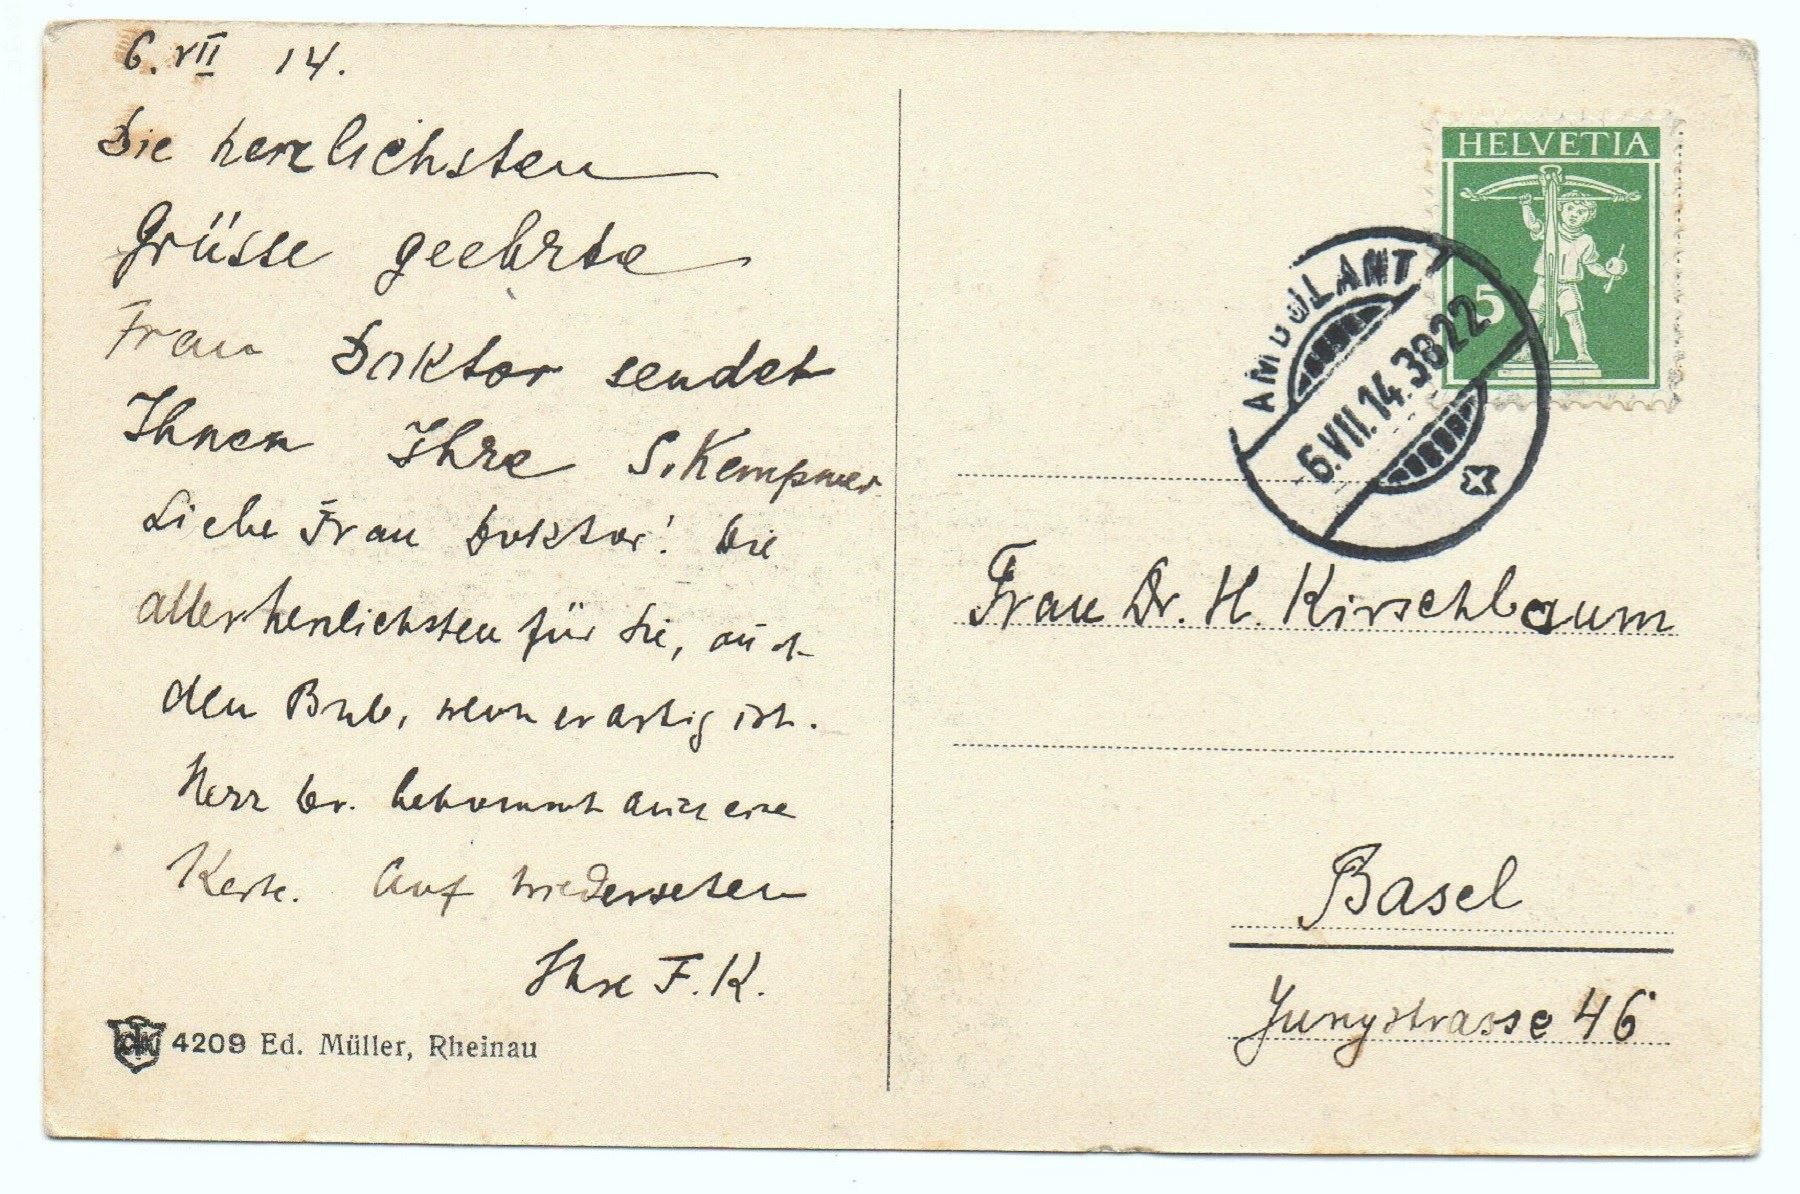 6. VII 14.
Die herzlichsten
Grüsse geehrte
Frau Doktor sendet
Ihnen Ihre S. Kempner
Liebe Frau Doktor! Die
allerherzlichsten für Sie, auch
den Bub, wenn er artig ist.
Herr Dr. bekommt auch eine
Karte. Auf Wiedersehen
Ihre F. K.
4209 Ed. Müller, Rheinau
HELVETIA
5
AMBULANT
6.VII.14.3822
Frau Dr. H. Kirschbaum
Basel
Jungstrasse 46